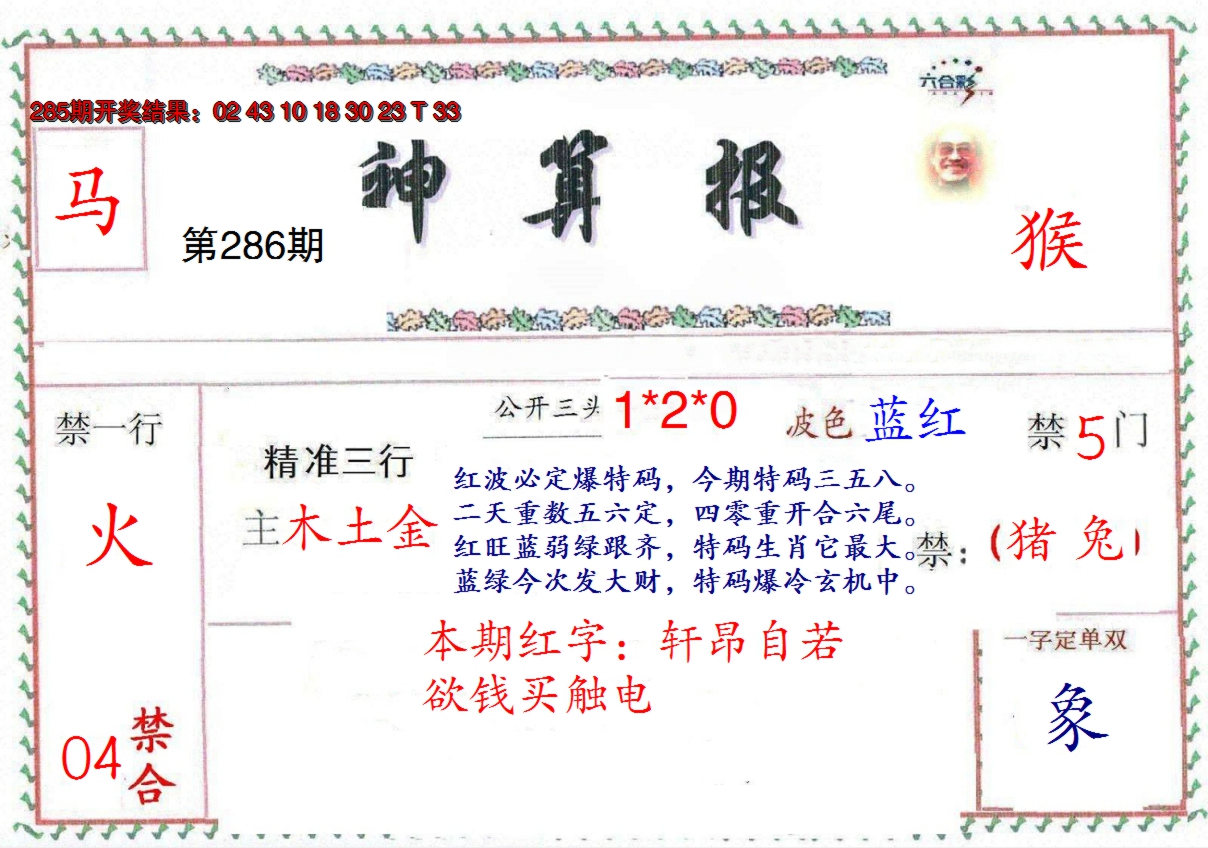 六合彩
285期开奖结果：02 43 10 18 30 23 T 33
神算报
马
第286期
猴
禁一行
火
04
禁合
精准三行
主木土金
公开三头 1*2*0
波色 蓝红
禁5门
禁：（猪 兔）
红波必定爆特码，今期特码三五八。
二天重数五六定，四零重开合六尾。
红旺蓝弱绿跟齐，特码生肖它最大。
蓝绿今次发大财，特码爆冷玄机中。
本期红字：轩昂自若
欲钱买触电
一字定单双
象